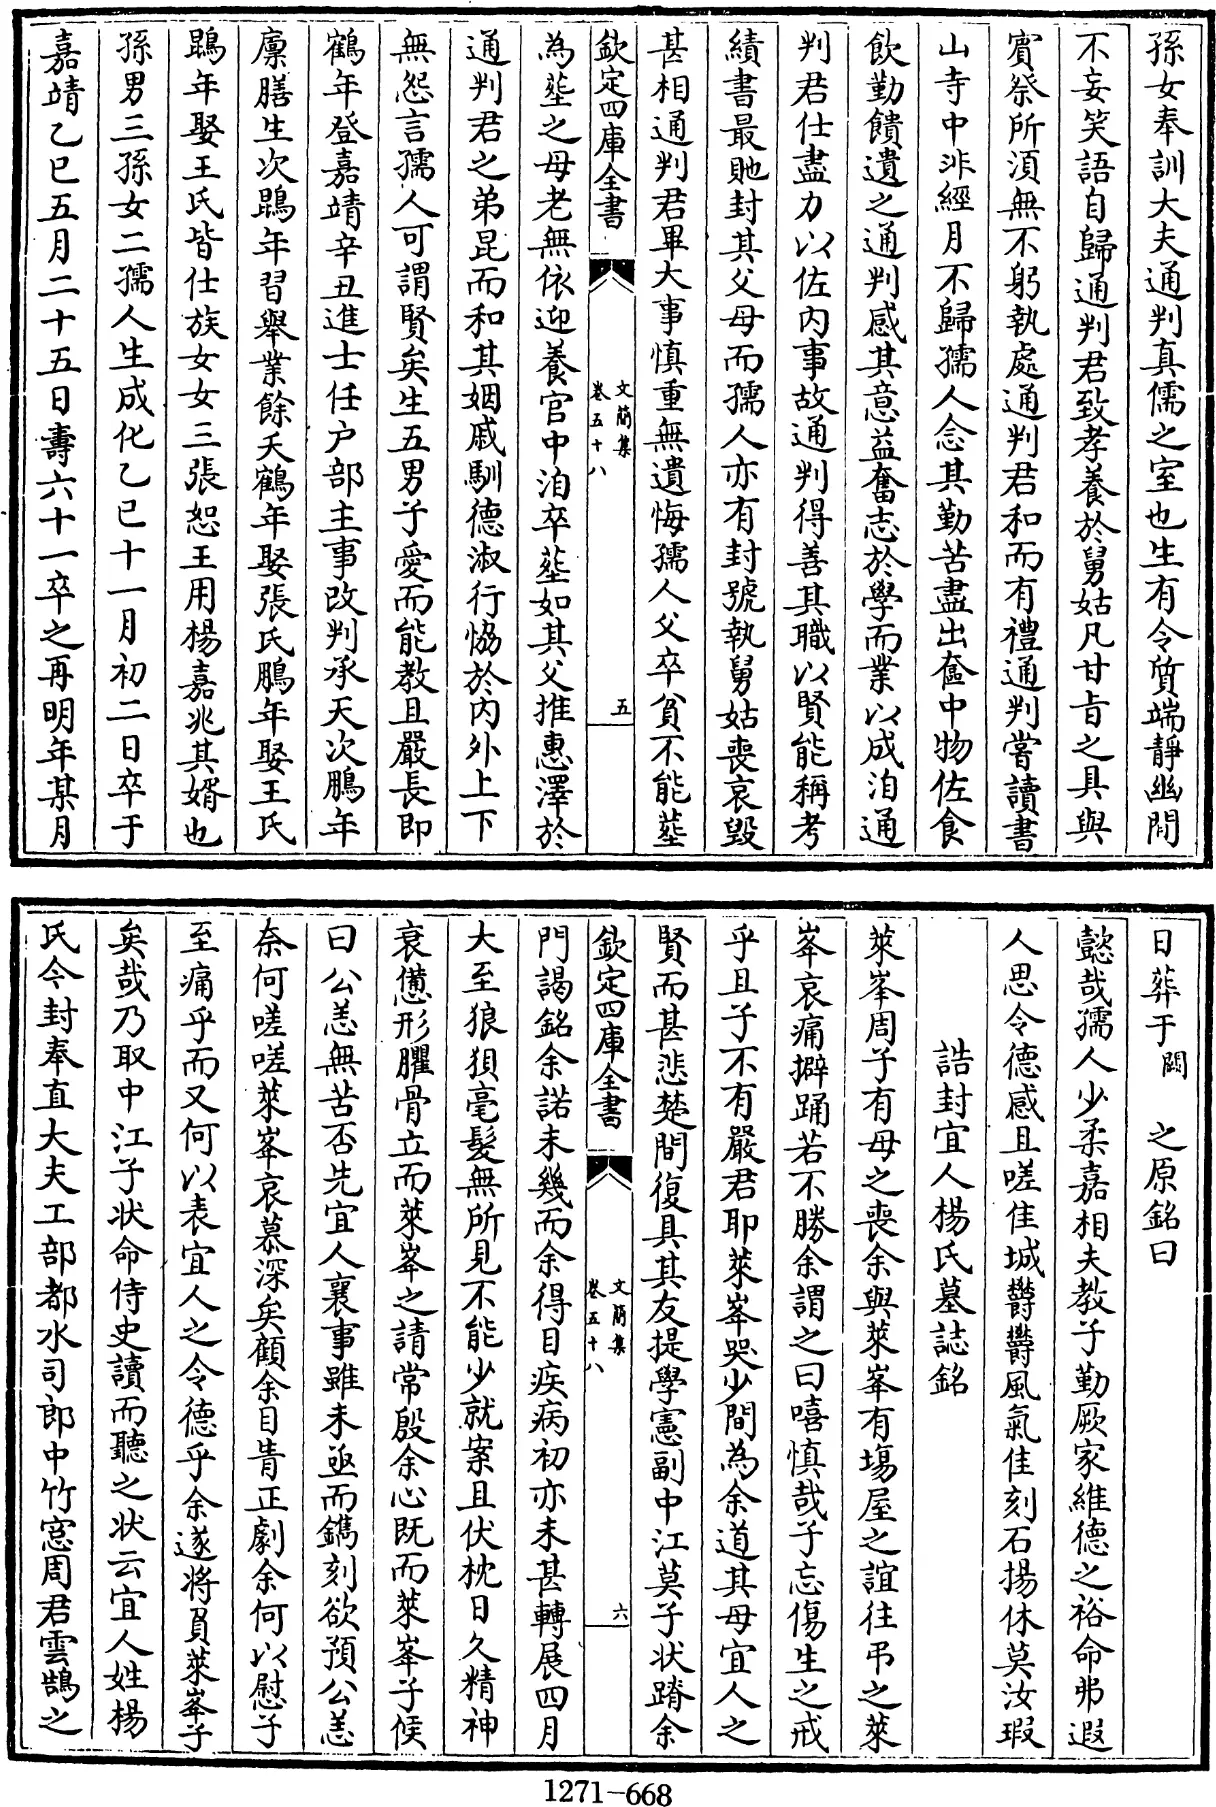 孫女奉訓大夫通判真儒之室也生有令質端靜幽閒
不妄笑語自歸通判君致孝養於舅姑凡甘旨之具與
賓祭所須無不躬執處通判君和而有禮通判嘗讀書
山寺中非經月不歸孺人念其勤苦盡出奩中物佐食
飲勤饋遺之通判感其意益奮志於學而業以成洎通
判君仕盡力以佐內事故通判得善其職以賢能稱考
績書最貤封其父母而孺人亦有封號執舅姑喪哀毀
甚相通判君畢大事慎重無遺悔孺人父卒貧不能塟
欽定四庫全書
文簡集
卷五十八
五
為塟之母老無依迎養官中洎卒塟如其父推惠澤於
通判君之弟昆而和其姻戚馴德淑行恊於內外上下
無怨言孺人可謂賢矣生五男子愛而能教且嚴長即
鶴年登嘉靖辛丑進士任户部主事改判承天次鵬年
廪膳生次鵾年習舉業餘夭鶴年娶張氏鵬年娶王氏
鵾年娶王氏皆仕族女女三張恕王用楊嘉兆其婿也
孫男三孫女二孺人生成化乙巳十一月初二日卒于
嘉靖乙巳五月二十五日壽六十一卒之再明年某月
日葬于闕之原銘曰
懿哉孺人少柔嘉相夫教子勤厥家維德之裕命弗遐
人思令德感且嗟佳城鬱鬱風氣佳刻石揚休莫汝瑕
誥封宜人楊氏墓誌銘
萊峯周子有母之喪余與萊峯有塲屋之誼往弔之萊
峯哀痛擗踊若不勝余謂之曰嘻慎哉子忘傷生之戒
乎且子不有嚴君耶萊峯哭少間為余道其母宜人之
賢而甚悲楚間復具其友提學憲副中江莫子状躋余
欽定四庫全書
文簡集
卷五十八
六
門謁銘余諾未幾而余得目疾病初亦未甚轉展四月
大至狼狽毫髮無所見不能少就案且伏枕日久精神
衰憊形臞骨立而萊峯之請常殷余心既而萊峯子候
曰公恙無苦否先宜人襄事雖未亟而鐫刻欲預公恙
奈何嗟嗟萊峯哀慕深矣顧余目眚正劇余何以慰子
至痛乎而又何以表宜人之令德乎余遂將負萊峯子
矣哉乃取中江子状命侍史讀而聽之状云宜人姓楊
氏今封奉直大夫工部都水司郎中竹窓周君雲鵠之
1271-668